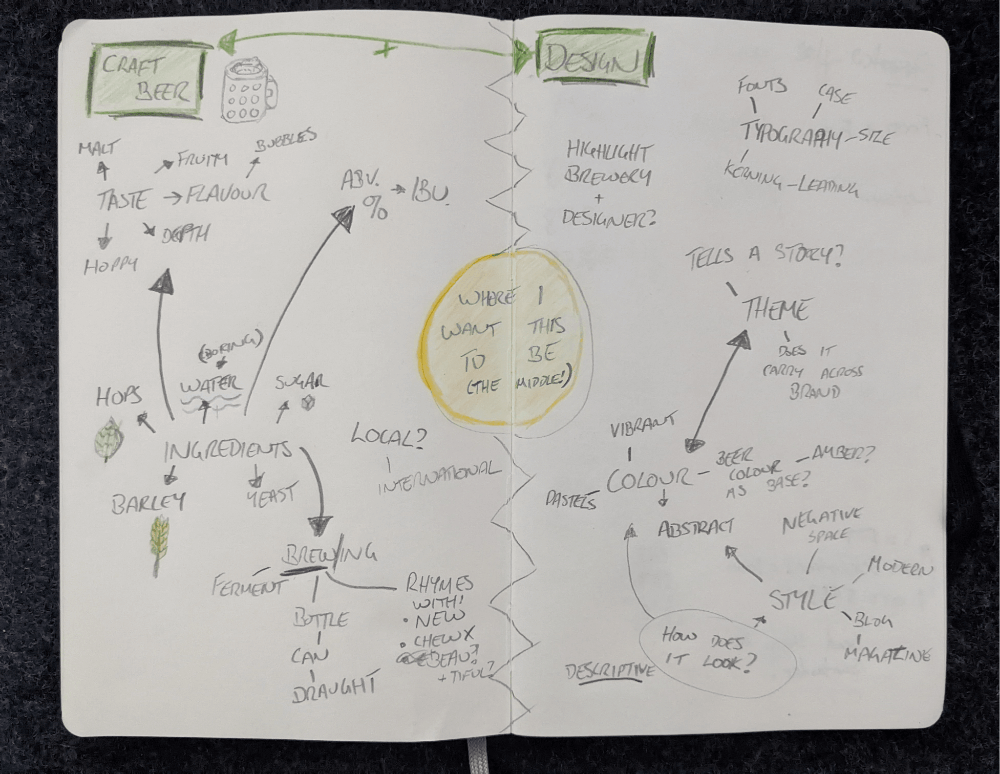 CRAFT
BEER
DESIGN
MALT
FRUITY
BUBBLES
TASTE → FLAVOUR
DEPTH
HOPPY
ABV. → IBU.
%
(BORING)
HOPS
WATER
SUGAR
INGREDIENTS
BARLEY
YEAST
LOCAL?
INTERNATIONAL
BREWING
FERMENT
BOTTLE
CAN
DRAUGHT
RHYMES
WITH!
• NEW
• CHEW X
BEAU?
+ TIFUL?
WHERE I
WANT THIS
TO BE
(THE MIDDLE!)
HIGHLIGHT
BREWERY
+
DESIGNER?
FONTS
CASE
TYPOGRAPHY - SIZE
KERNING - LEADING
TELLS A STORY?
THEME
DOES IT
CARRY ACROSS
BRAND
VIBRANT
COLOUR - BEER
COLOUR
AS BASE?
- AMBER?
PASTELS
ABSTRACT
NEGATIVE
SPACE
MODERN
STYLE
BLOG
MAGAZINE
HOW DOES
IT LOOK?
DESCRIPTIVE